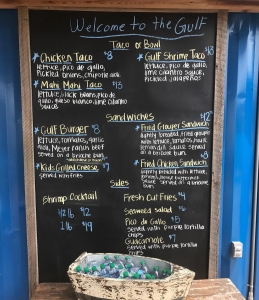 Welcome to the Gulf
Taco or Bowl
Chicken Taco $8
lettuce, pico de gallo,
pickled onions, chipotle aioli
Mahi Mahi Taco $15
lettuce, black beans, pico de
gallo, queso blanco, lime cilantro
sauce
Gulf Shrimp Taco
lettuce, pico de gallo
lime cilantro sauce
pickled jalapeños
Sandwiches
Gulf Burger $8
lettuce, tomatoes, garlic
aioli, Meyer ranch beef
served on a brioche bun
Kids Grilled Cheese $7
served with fries
Fried Grouper Sandwich
lightly breaded, fried grouper
with lettuce, tomatoes,
sauce served
on a brioche bun
Fried Chicken Sandwich
lightly breaded with lettuce,
sauce served on a brioche
bun
Sides
Shrimp Cocktail
1/2 lb
1 lb
Fresh Cut Fries $4
Seaweed salad
Pico de Gallo $8
served with purple tortilla
chips
Guacamole
served with purple tortilla
chips